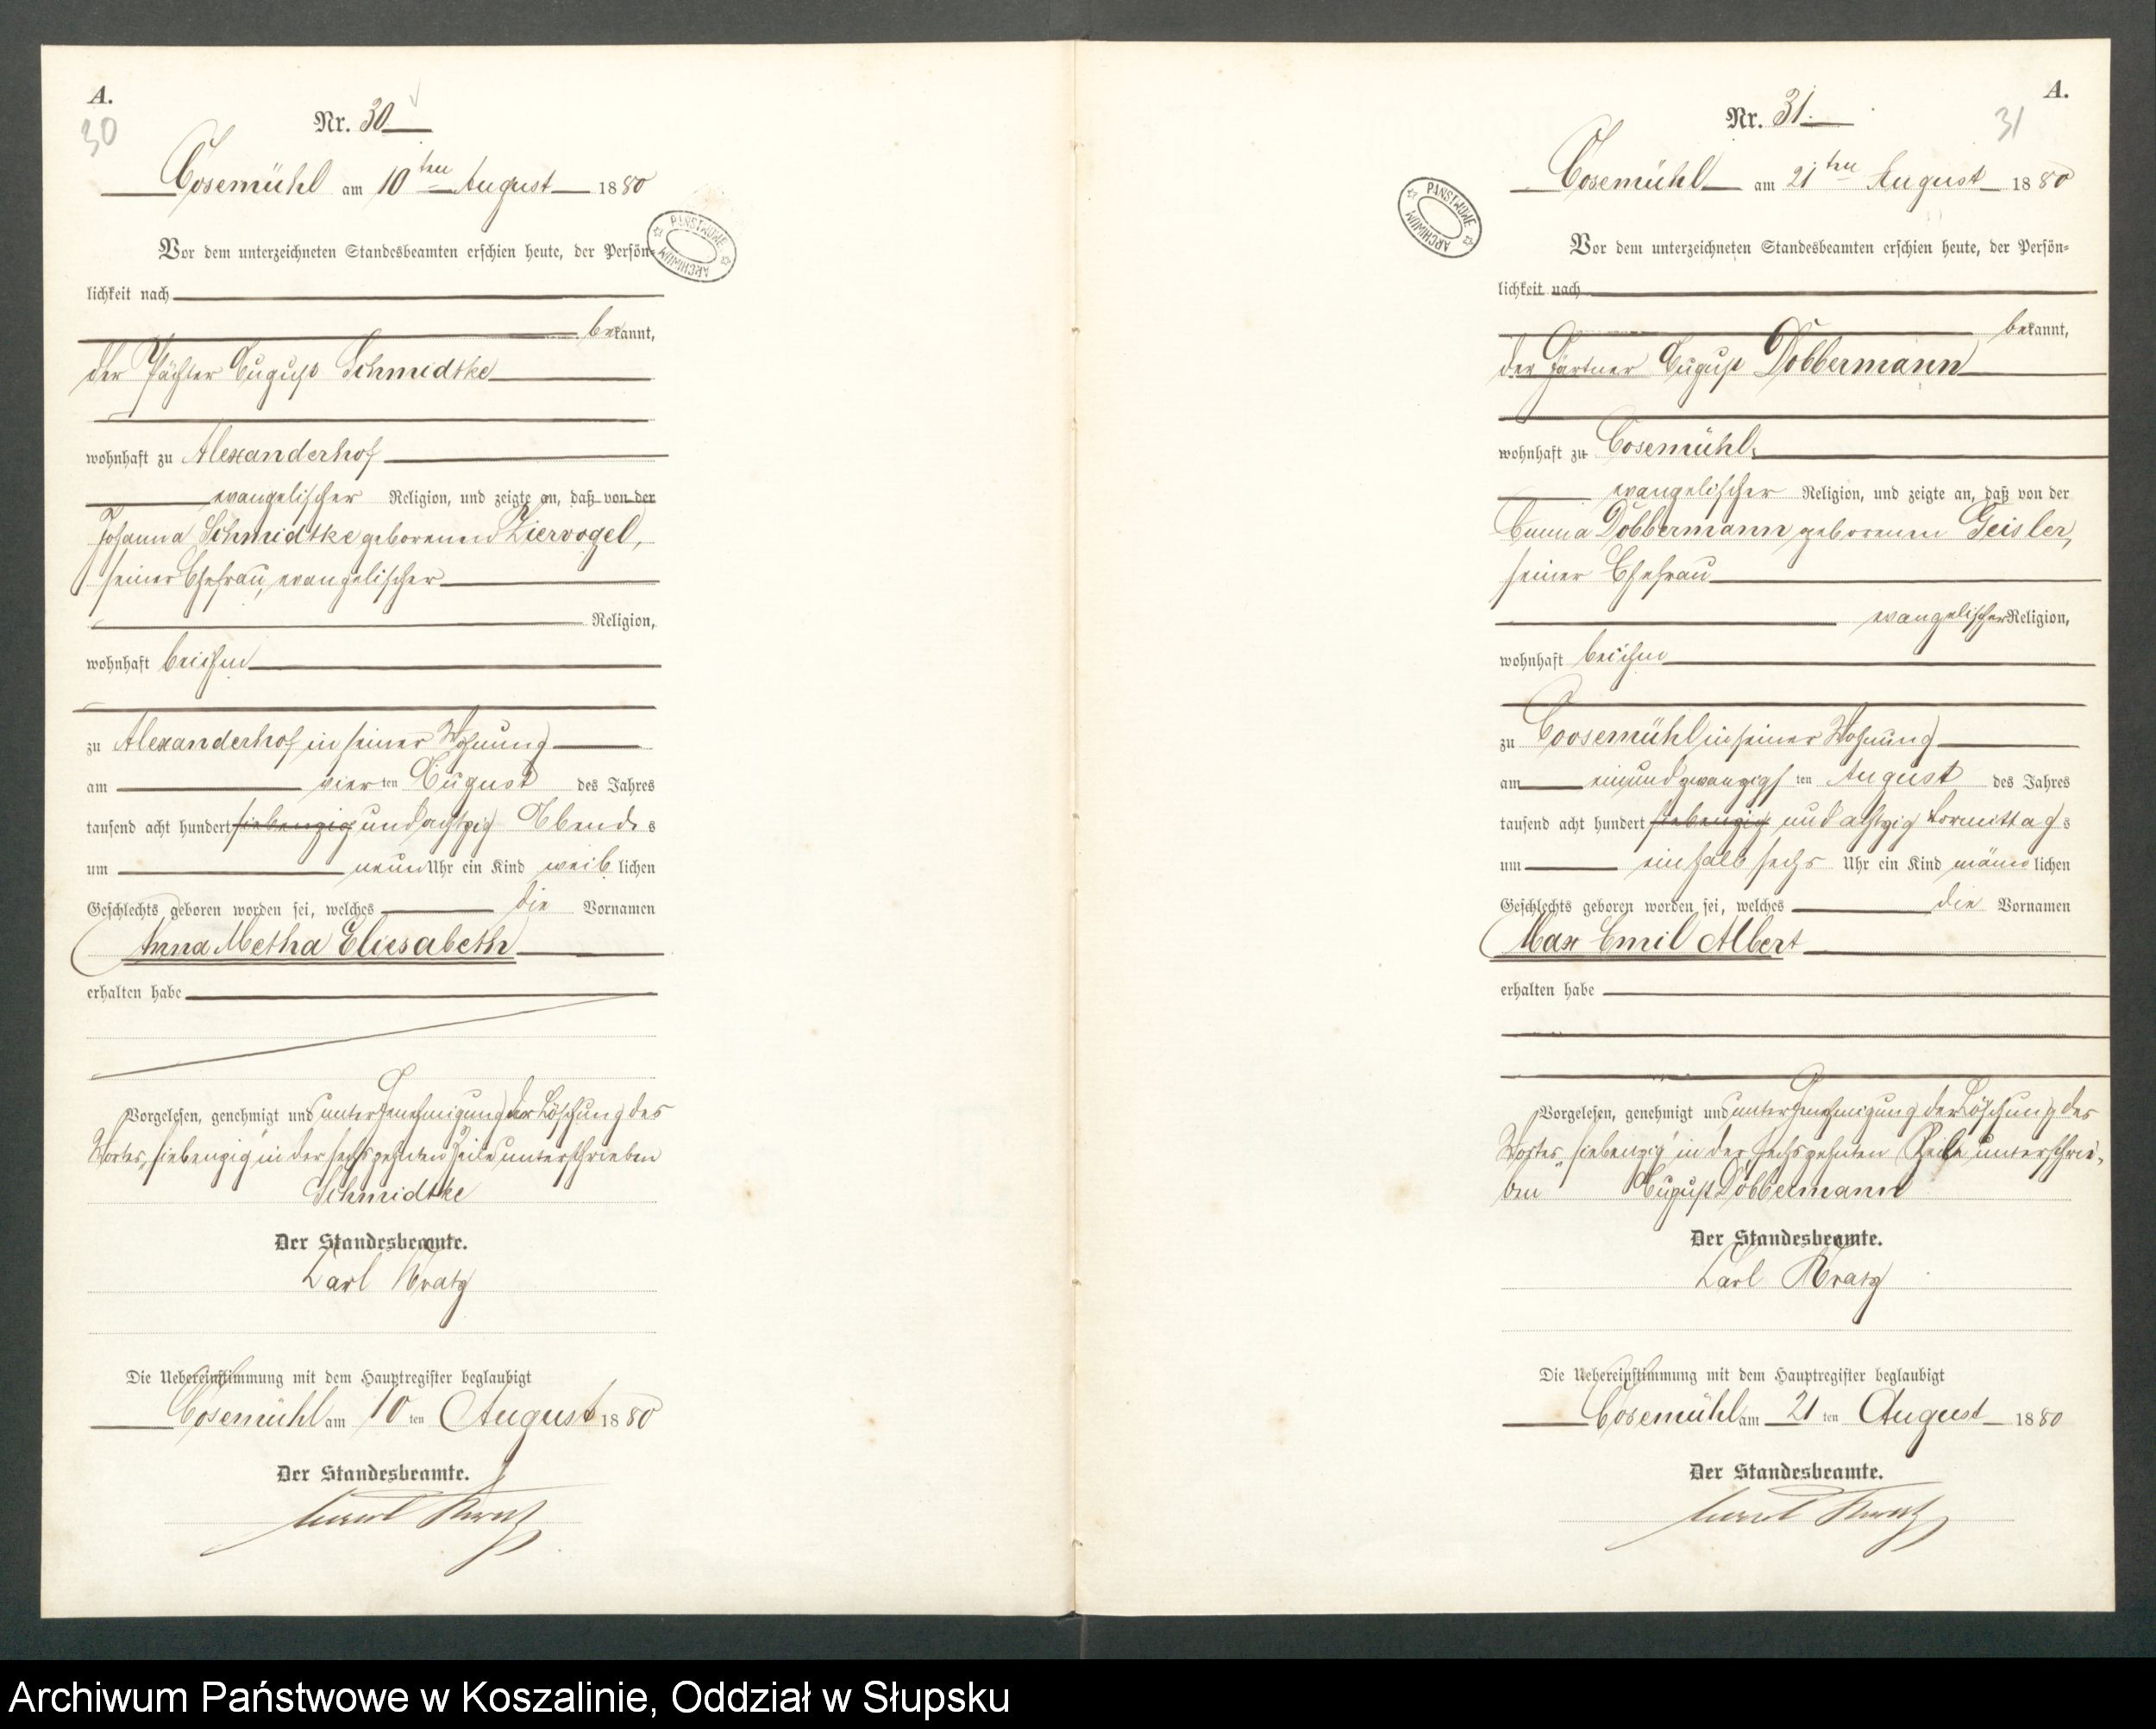 A.
30
Nr. 30
Cosemühl am 10ten August 1880
PAŃSTWOWE ARCHIWUM
Vor dem unterzeichneten Standesbeamten erschien heute, der Persön-
lichkeit nach
bekannt,
der Pächter August Schmidtke
wohnhaft zu Alexanderhof
evangelischer Religion, und zeigte an, daß von der
Johanna Schmidtke geborenen Ziervogel,
seiner Ehefrau, evangelischer
Religion,
wohnhaft bei ihm
zu Alexanderhof in seiner Wohnung
am vierten August des Jahres
tausend acht hundert siebenzig und achtzig Abends
um neun Uhr ein Kind weiblichen
Geschlechts geboren worden sei, welches die Vornamen
Anna Metha Eliesabeth
erhalten habe
Vorgelesen, genehmigt und unter Genehmigung der Löschung des
Wortes „siebenzig" in der sechszehnten Zeile unterschrieben
Schmidtke
Der Standesbeamte.
Carl Kratz
Die Uebereinstimmung mit dem Hauptregister beglaubigt
Cosemühl am 10ten August 1880
Der Standesbeamte.
Carl Kratz
A.
31
Nr. 31.
Cosemühl am 21ten August 1880
PAŃSTWOWE ARCHIWUM
Vor dem unterzeichneten Standesbeamten erschien heute, der Persön-
lichkeit nach
bekannt,
der Gärtner August Dobbermann
wohnhaft zu Cosemühl,
evangelischer Religion, und zeigte an, daß von der
Emma Dobbermann geborenen Geisler,
seiner Ehefrau
evangelischer Religion,
wohnhaft bei ihm
zu Coosemühl in seiner Wohnung
am einundzwanzigsten August des Jahres
tausend acht hundert siebenzig und achtzig Vormittags
um einhalb sechs Uhr ein Kind männlichen
Geschlechts geboren worden sei, welches die Vornamen
Max Emil Albert
erhalten habe
Vorgelesen, genehmigt und unter Genehmigung der Löschung des
Wortes „siebenzig" in der sechszehnten Zeile unterschrie-
ben August Dobbermann
Der Standesbeamte.
Carl Kratz
Die Uebereinstimmung mit dem Hauptregister beglaubigt
Cosemühl am 21ten August 1880
Der Standesbeamte.
Carl Kratz
Archiwum Państwowe w Koszalinie, Oddział w Słupsku